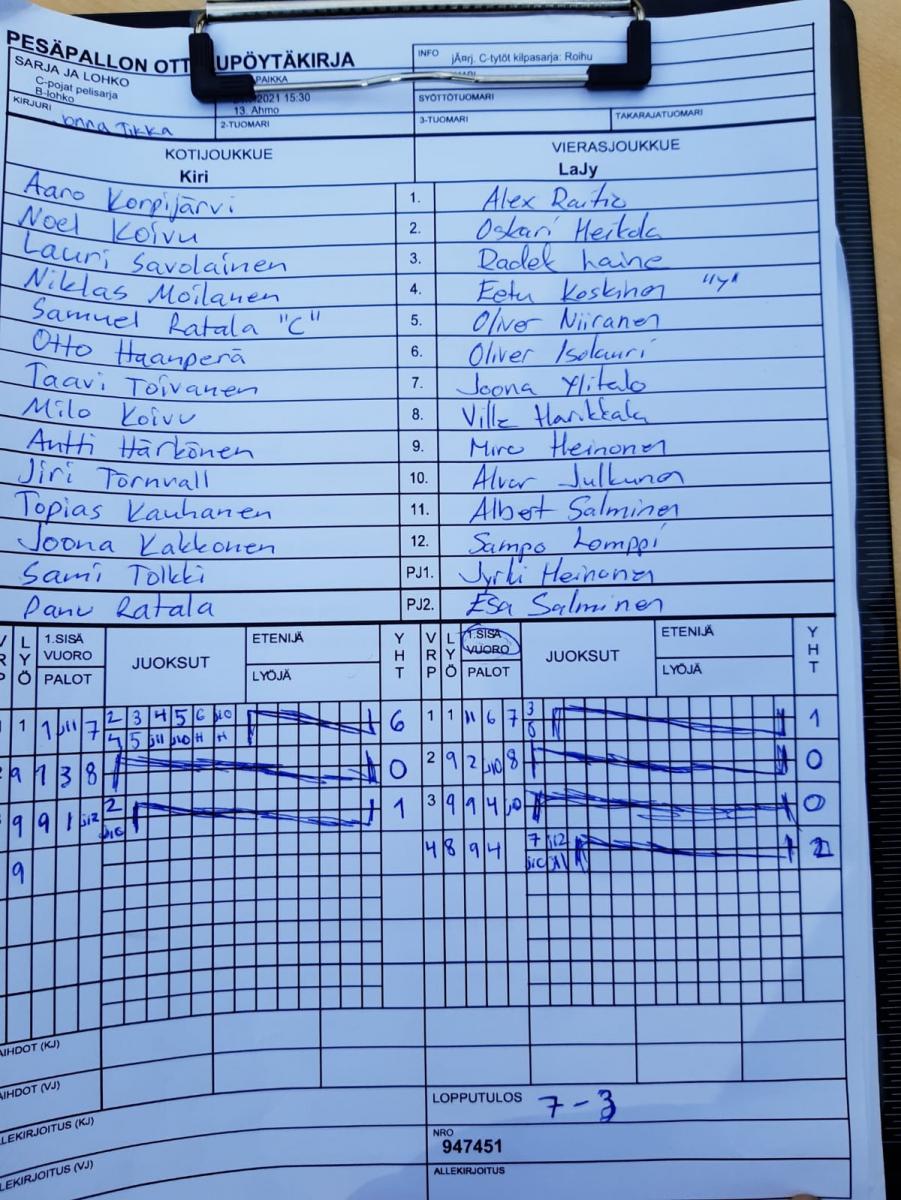 PESÄPALLON OTT UPÖYTÄKIRJA
SARJA JA LOHKO
C-pojat pelisarja
B-lohko
PAIKKA
2021 15:30
13. Ahmo
INFO
jÄ¤rj. C-tytöt kilpasarja: Roihu
SYÖTTÖTUOMARI
KIRJURI
Tikka
2-TUOMARI
3-TUOMARI
TAKARAJATUOMARI
KOTIJOUKKUE
Kiri
VIERASJOUKKUE
LaJy
Aaro Korpijärvi 1. Alex Raitio
Noel Koivu 2. Oskari Heikola
Lauri Savolainen 3. Radek Laine
Niklas Moilanen 4. Eetu Koskinen "Y"
Samuel Ratala "C" 5. Oliver Niiranen
Otto Haanperä 6. Oliver Isolauri
Taavi Toivanen 7. Joona Ylitalo
Milo Koivu 8. Ville Harikkala
Antti Härkönen 9. Miro Heinonen
Jiri Törnvall 10. Alvar Julkunen
Topias Kauhanen 11. Albert Salminen
Joona Kakkonen 12. Sampo Lomppi
Sami Tolkki PJ1. Jyrki Heinonen
Panu Ratala PJ2. Esa Salminen
LYÖ 1.SISÄ VUORO PALOT JUOKSUT ETENIJÄ LYÖJÄ YHT VRP LYÖ 1.SISÄ VUORO PALOT JUOKSUT ETENIJÄ LYÖJÄ YHT
1 1 j11 7 2 3 4 5 6 j10 6 1 1 11 6 7 3 1
4 5 j11 j10 H H 6
9 1 3 8 0 2 9 2 j10 8 0
9 9 1 j12 2 1 3 9 9 4 j10 0
j10
9 4 8 9 4 7 j12 2
j10 j11
AIHDOT (KJ)
AIHDOT (VJ)
LOPPUTULOS 7-3
LLEKIRJOITUS (KJ)
NRO
947451
LLEKIRJOITUS (VJ)
ALLEKIRJOITUS